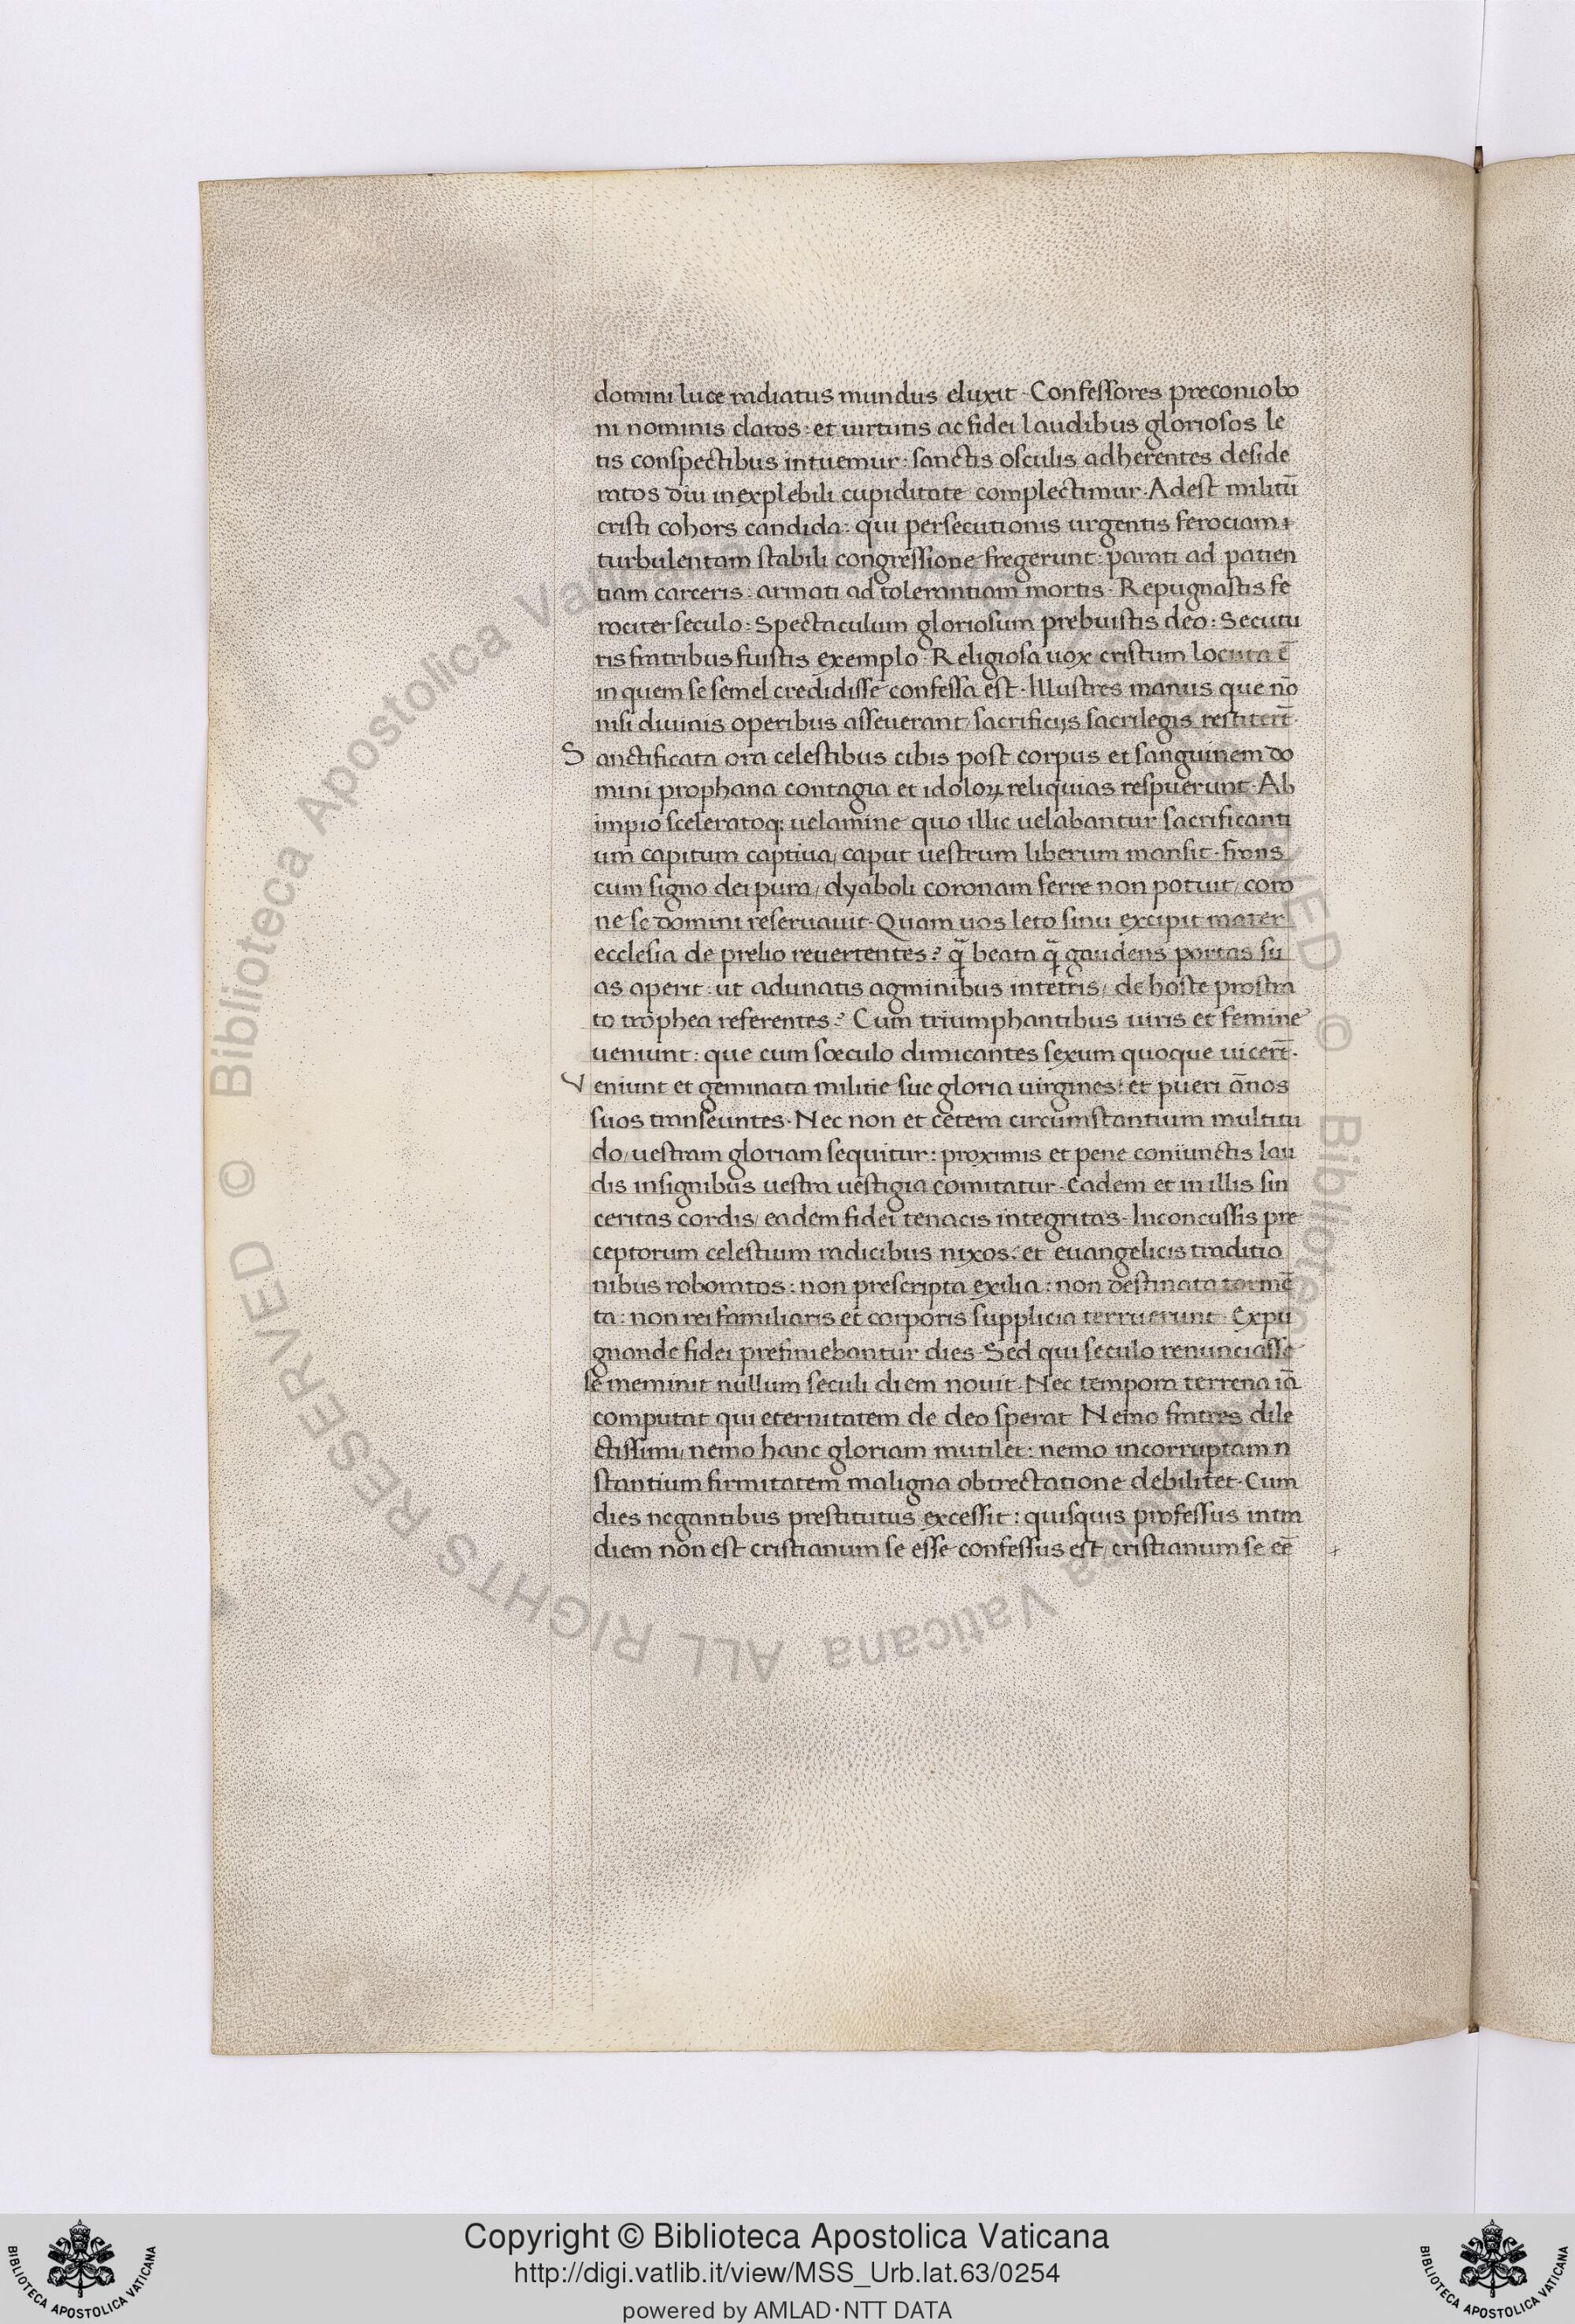 domini luce radiatus mundus eluxit · Confessores preconio bo
ni nominis claros : et uirtutis ac fidei laudibus gloriosos le
tis conspectibus intuemur : sanctis osculis adherentes deside
ratos diu inexplebili cupiditate complectimur · Adest militū
cristi cohors candida : qui persecutionis urgentis ferociam
turbulentam stabili congressione fregerunt : parati ad patien
tiam carceris : armati ad tolerantiam mortis · Repugnastis fe
rociter seculo : Spectaculum gloriosum prebuistis deo : Secutu
ris fratribus fuistis exemplo · Religiosa uox cristum locuta ē
in quem se semel credidisse confessa est · Illustres manus que nō
nisi diuinis operibus asseuerant / sacrificijs sacrilegis restiterūt ·
Sanctificata ora celestibus cibis post corpus et sanguinem do
mini prophana contagia et idoloꝝ reliquias respuerunt · Ab
impio sceleratoq; uelamine quo illic uelabantur sacrificanti
um capitum captiua / caput uestrum liberum mansit · frons
cum signo dei pura / dyaboli coronam ferre non potuit / coro
ne se domini reseruauit · Quam uos leto sinu excipit mater
ecclesia de prelio reuertentes ? q̄ beata q̄ gaudens portas su
as aperit : ut adunatis agminibus intretis / de hoste prostra
to trophea referentes ? Cum triumphantibus uiris et femine
ueniunt : que cum sœculo dimicantes sexum quoque uicerūt ·
Veniunt et geminata militie sue gloria uirgines : et pueri ānos
suos transeuntes · Nec non et cetera circumstantium multitu
do / uestram gloriam sequitur : proximis et pene coniunctis lau
dis insignibus uestra uestigia comitatur · Eadem et in illis sin
ceritas cordis / eadem fidei tenacis integritas · Inconcussis pre
ceptorum celestium radicibus nixos : et euangelicis traditio
nibus roboratos : non prescripta exilia : non destinata tormē
ta : non rei familiaris et corporis supplicia terruerunt · Expu
gnande fidei prefiniebantur dies · Sed qui seculo renunciasse
se meminit nullum seculi diem nouit · Nec tempora terrena iā
computat qui eternitatem de deo sperat Nemo fratres dile
ctissimi / nemo hanc gloriam mutilet : nemo incorruptam
stantium firmitatem maligna obtrectatione debilitet · Cum
dies negantibus prestitutus excessit : quisquis professus intra
diem non est cristianum se esse confessus est / cristianum se eē
Copyright © Biblioteca Apostolica Vaticana
http://digi.vatlib.it/view/MSS_Urb.lat.63/0254
powered by AMLAD·NTT DATA
BIBLIOTECA APOSTOLICA VATICANA
BIBLIOTECA APOSTOLICA VATICANA
© Biblioteca Apostolica Vaticana ALL RIGHTS RESERVED © Biblioteca Apostolica Vaticana ALL RIGHTS RESERVED